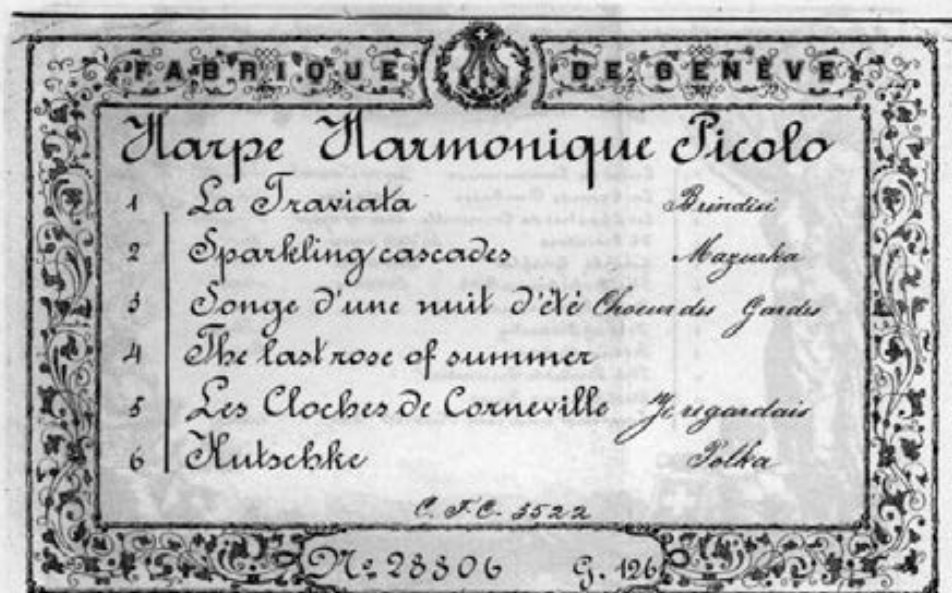 FABRIQUE DE GENÈVE
Harpe Harmonique Picolo
1 La Traviata Brindisi
2 Sparkling cascades Mazurka
3 Songe d'une nuit d'été Choeur des Gardes
4 The last rose of summer
5 Les Cloches de Corneville Je regardais
6 Kutschke Polka
C. F. C. 5522
No 28806 G. 126